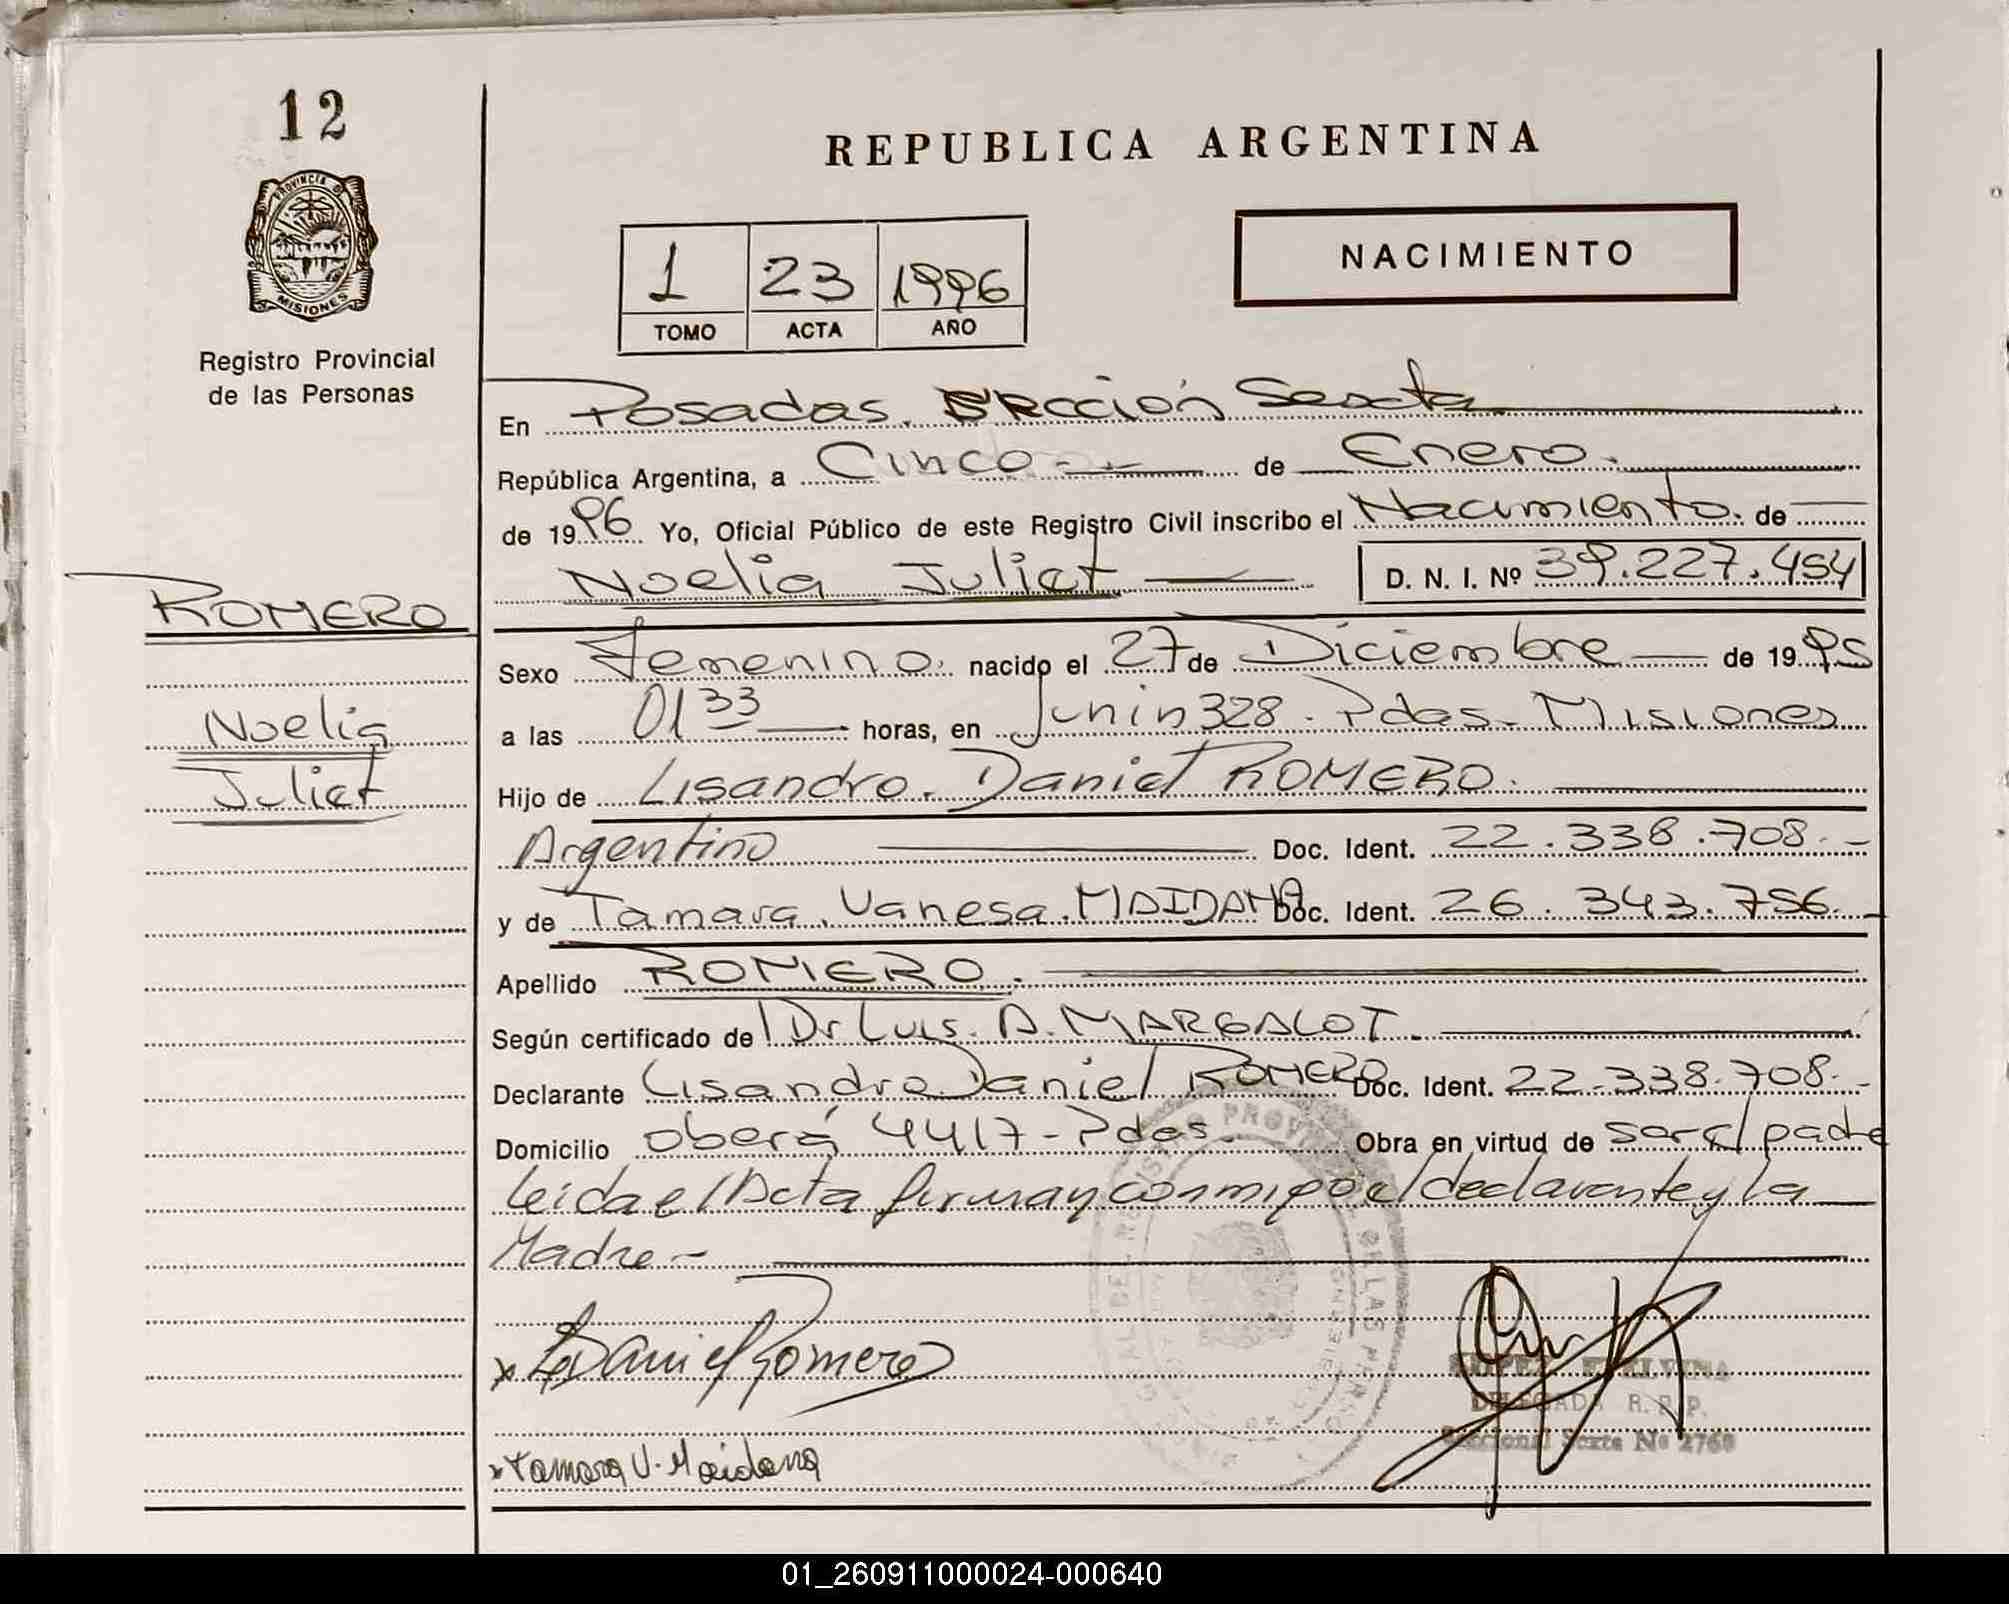 12
PROVINCIA DE
MISIONES
Registro Provincial
de las Personas
ROMERO
Noelia
Juliet
REPUBLICA ARGENTINA
NACIMIENTO
1 23 1996
TOMO ACTA AÑO
En Posadas. Sección Sexta
República Argentina, a Cinco.- de Enero.
de 1996 Yo, Oficial Público de este Registro Civil inscribo el Nacimiento. de
Noelia Juliet D. N. I. Nº 39.227.454
Sexo Femenino. nacido el 27 de Diciembre de 1995
a las 01 33 horas, en Junin 328. Pdas. Misiones
Hijo de Lisandro. Daniel ROMERO.
Argentino Doc. Ident. 22.338.708.-
y de Tamara. Vanesa. MAIDANA Doc. Ident. 26. 343. 756.-
Apellido ROMERO.
Según certificado de Dr Luis. A. MARGALOT.
Declarante Lisandro Daniel ROMERO Doc. Ident. 22.338.708.-
Domicilio oberá 4417 - Pdas. Obra en virtud de ser el padre
leida el Acta firman conmigo el declarante y la
Madre.-
x L. Daniel Romero
x Tamara V. Maidana
DELEGADA R. P. P.
Seccional Sexta Nº 2760
01_260911000024-000640